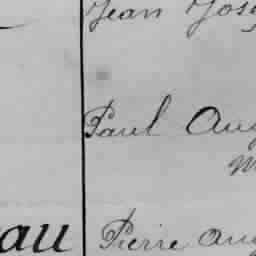 Jean Jos
Paul Aug
M
au Pierre Aug